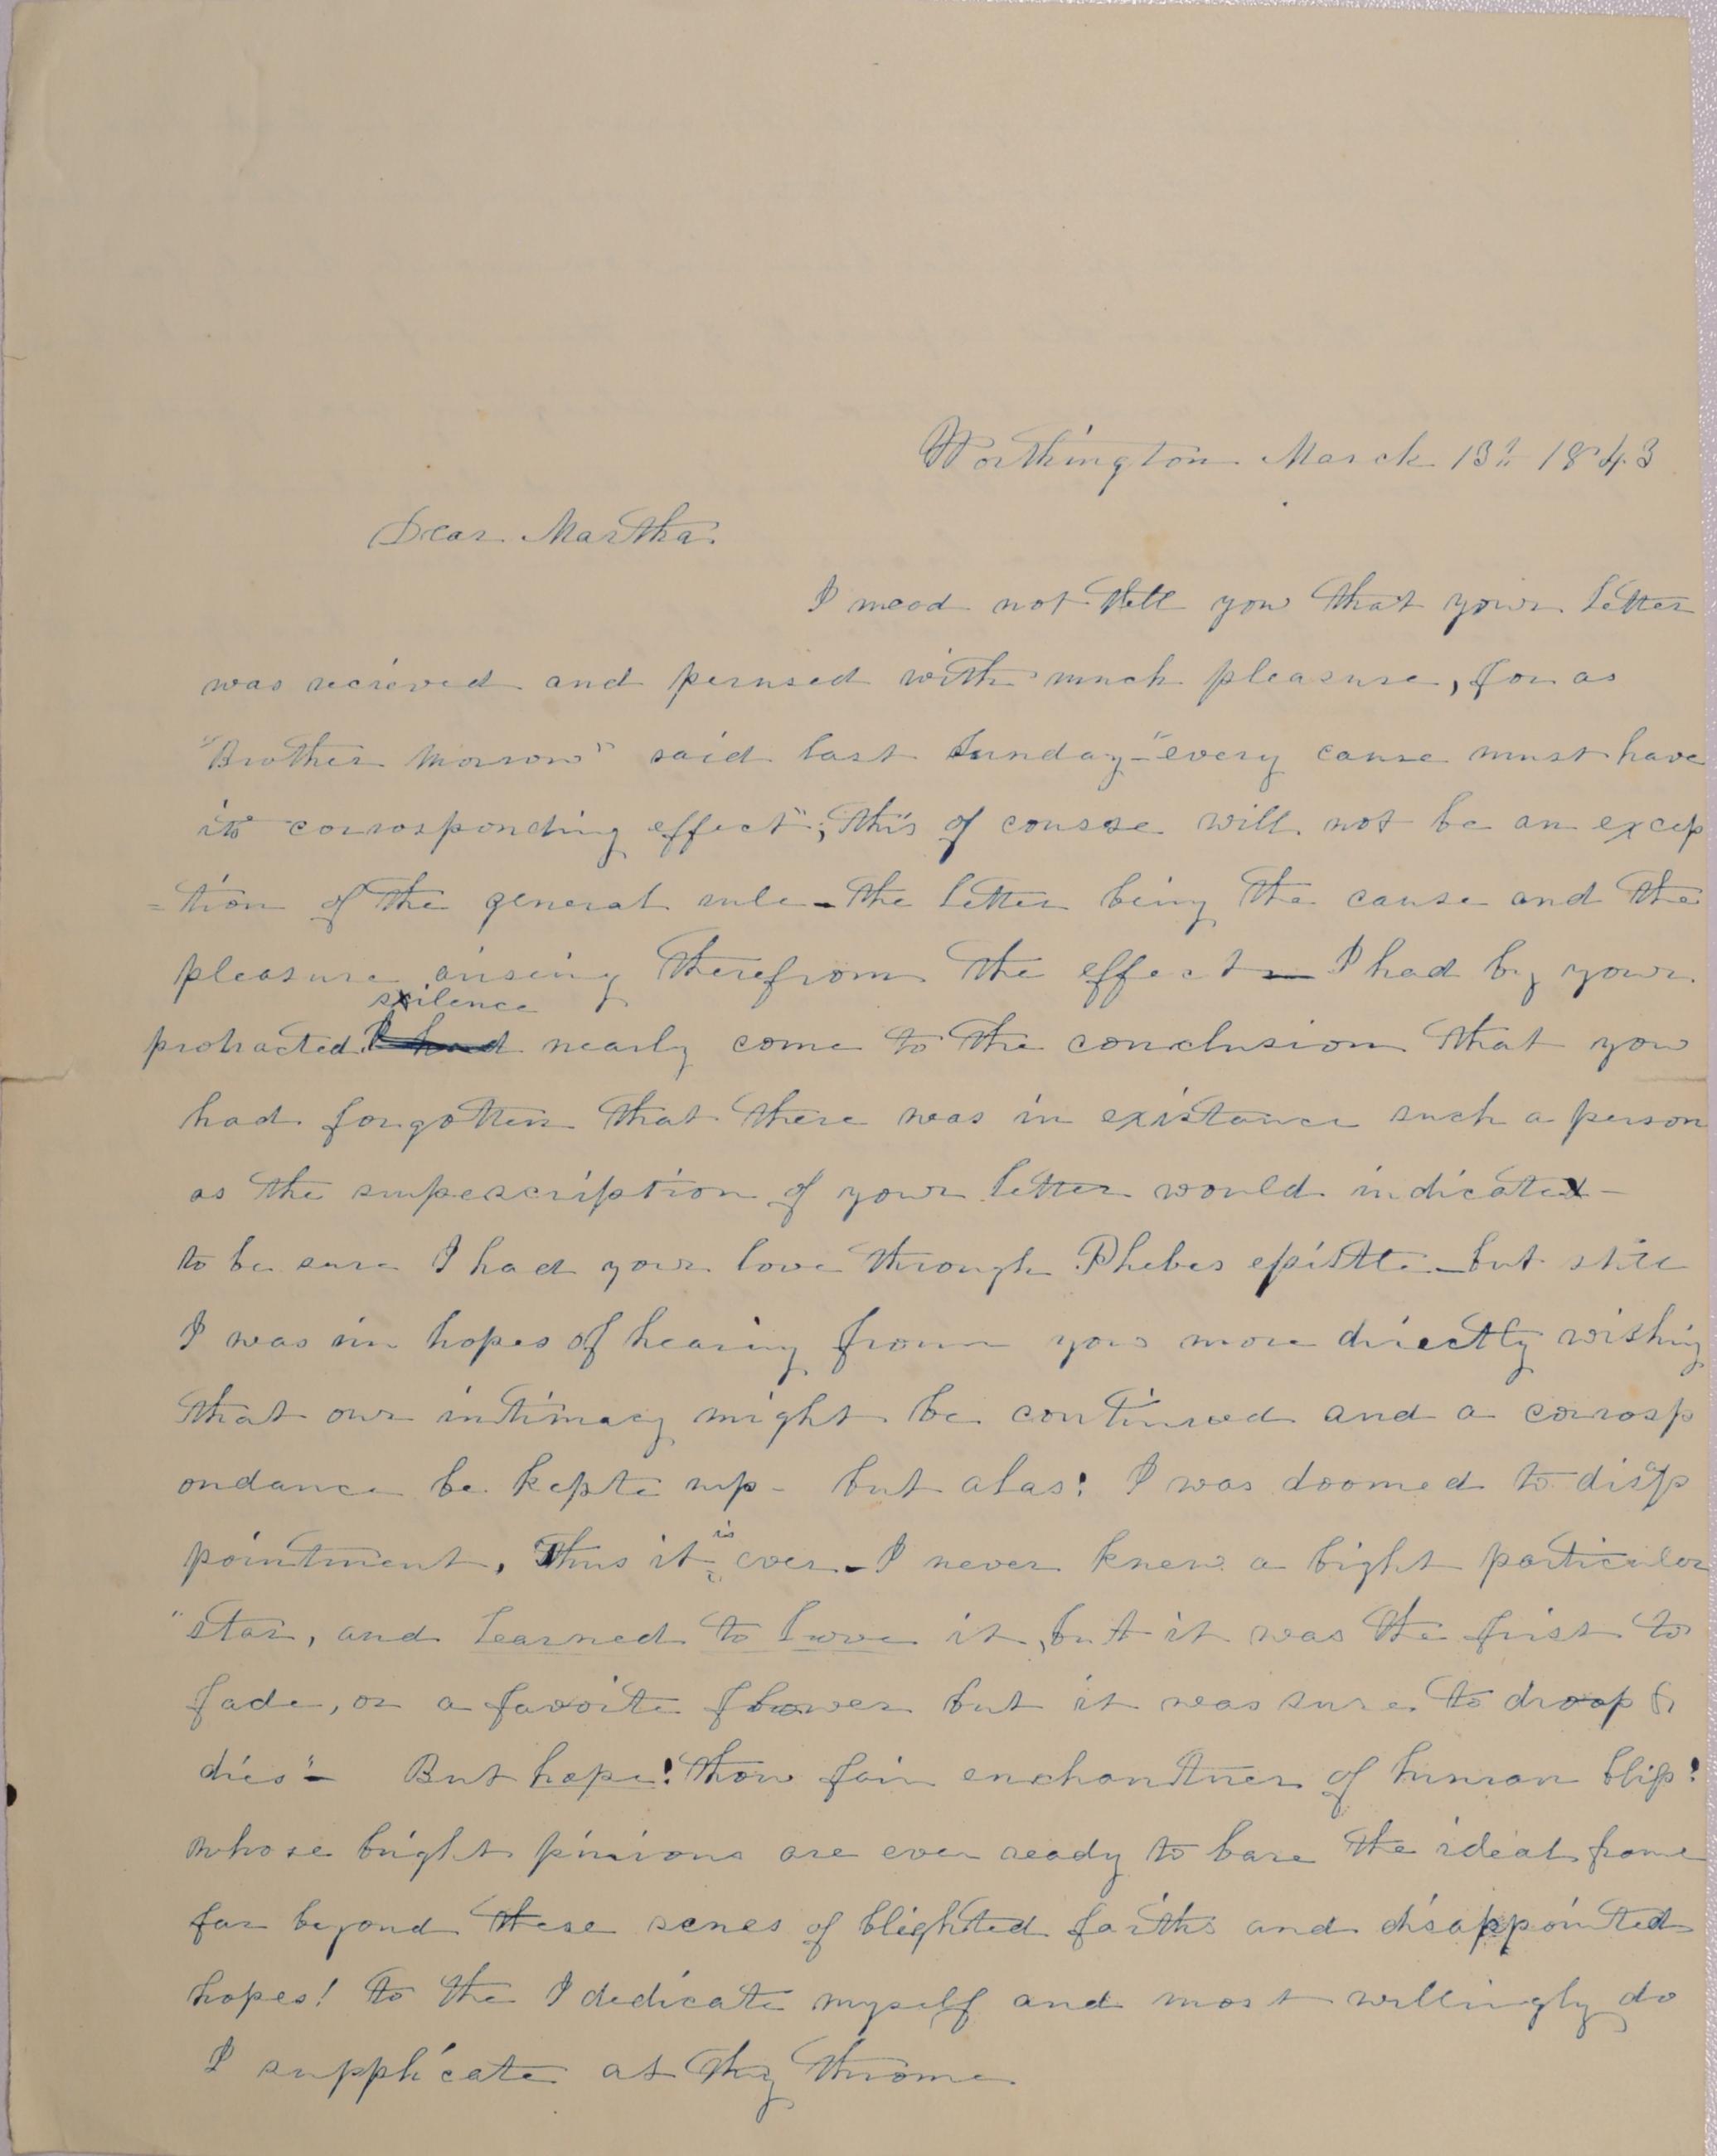 Worthington March 13th 1843
Dear Martha.
I need not tell you that your letter
was recieved and perused with much pleasure, for as
"Brother Morrow" said last Sunday-"every cause must have
its corrosponding effect"; this of course will not be an excep
=tion of the general rule - the letter being the cause and the
pleasure arising therefrom the effect - I had by your
silence
protracted I had nearly come to the conclusion that you
had forgotten that there was in existance such a person
as the superscription of your letter would indicate -
to be sure I had your love through Phebes epistle - but still
I was in hopes of hearing from you more directly wishing
that our intimacy might be continued and a corrosp
ondance be kepte up - but alas! I was doomed to disap
pointment, Thus it is ever - I never knew a bight particular
"star, and learned to love it, but it was the first to
fade, or a favoite flower but it was sure to droop &
dies" - But hope! thou fair enchantner of human bliss!
whose bright pinions are ever ready to bare the ideal frame
far beyond these senes of blighted faiths and disappointed
hopes! to the I dedicate myself and most willingly do
I supplicate at thy throne